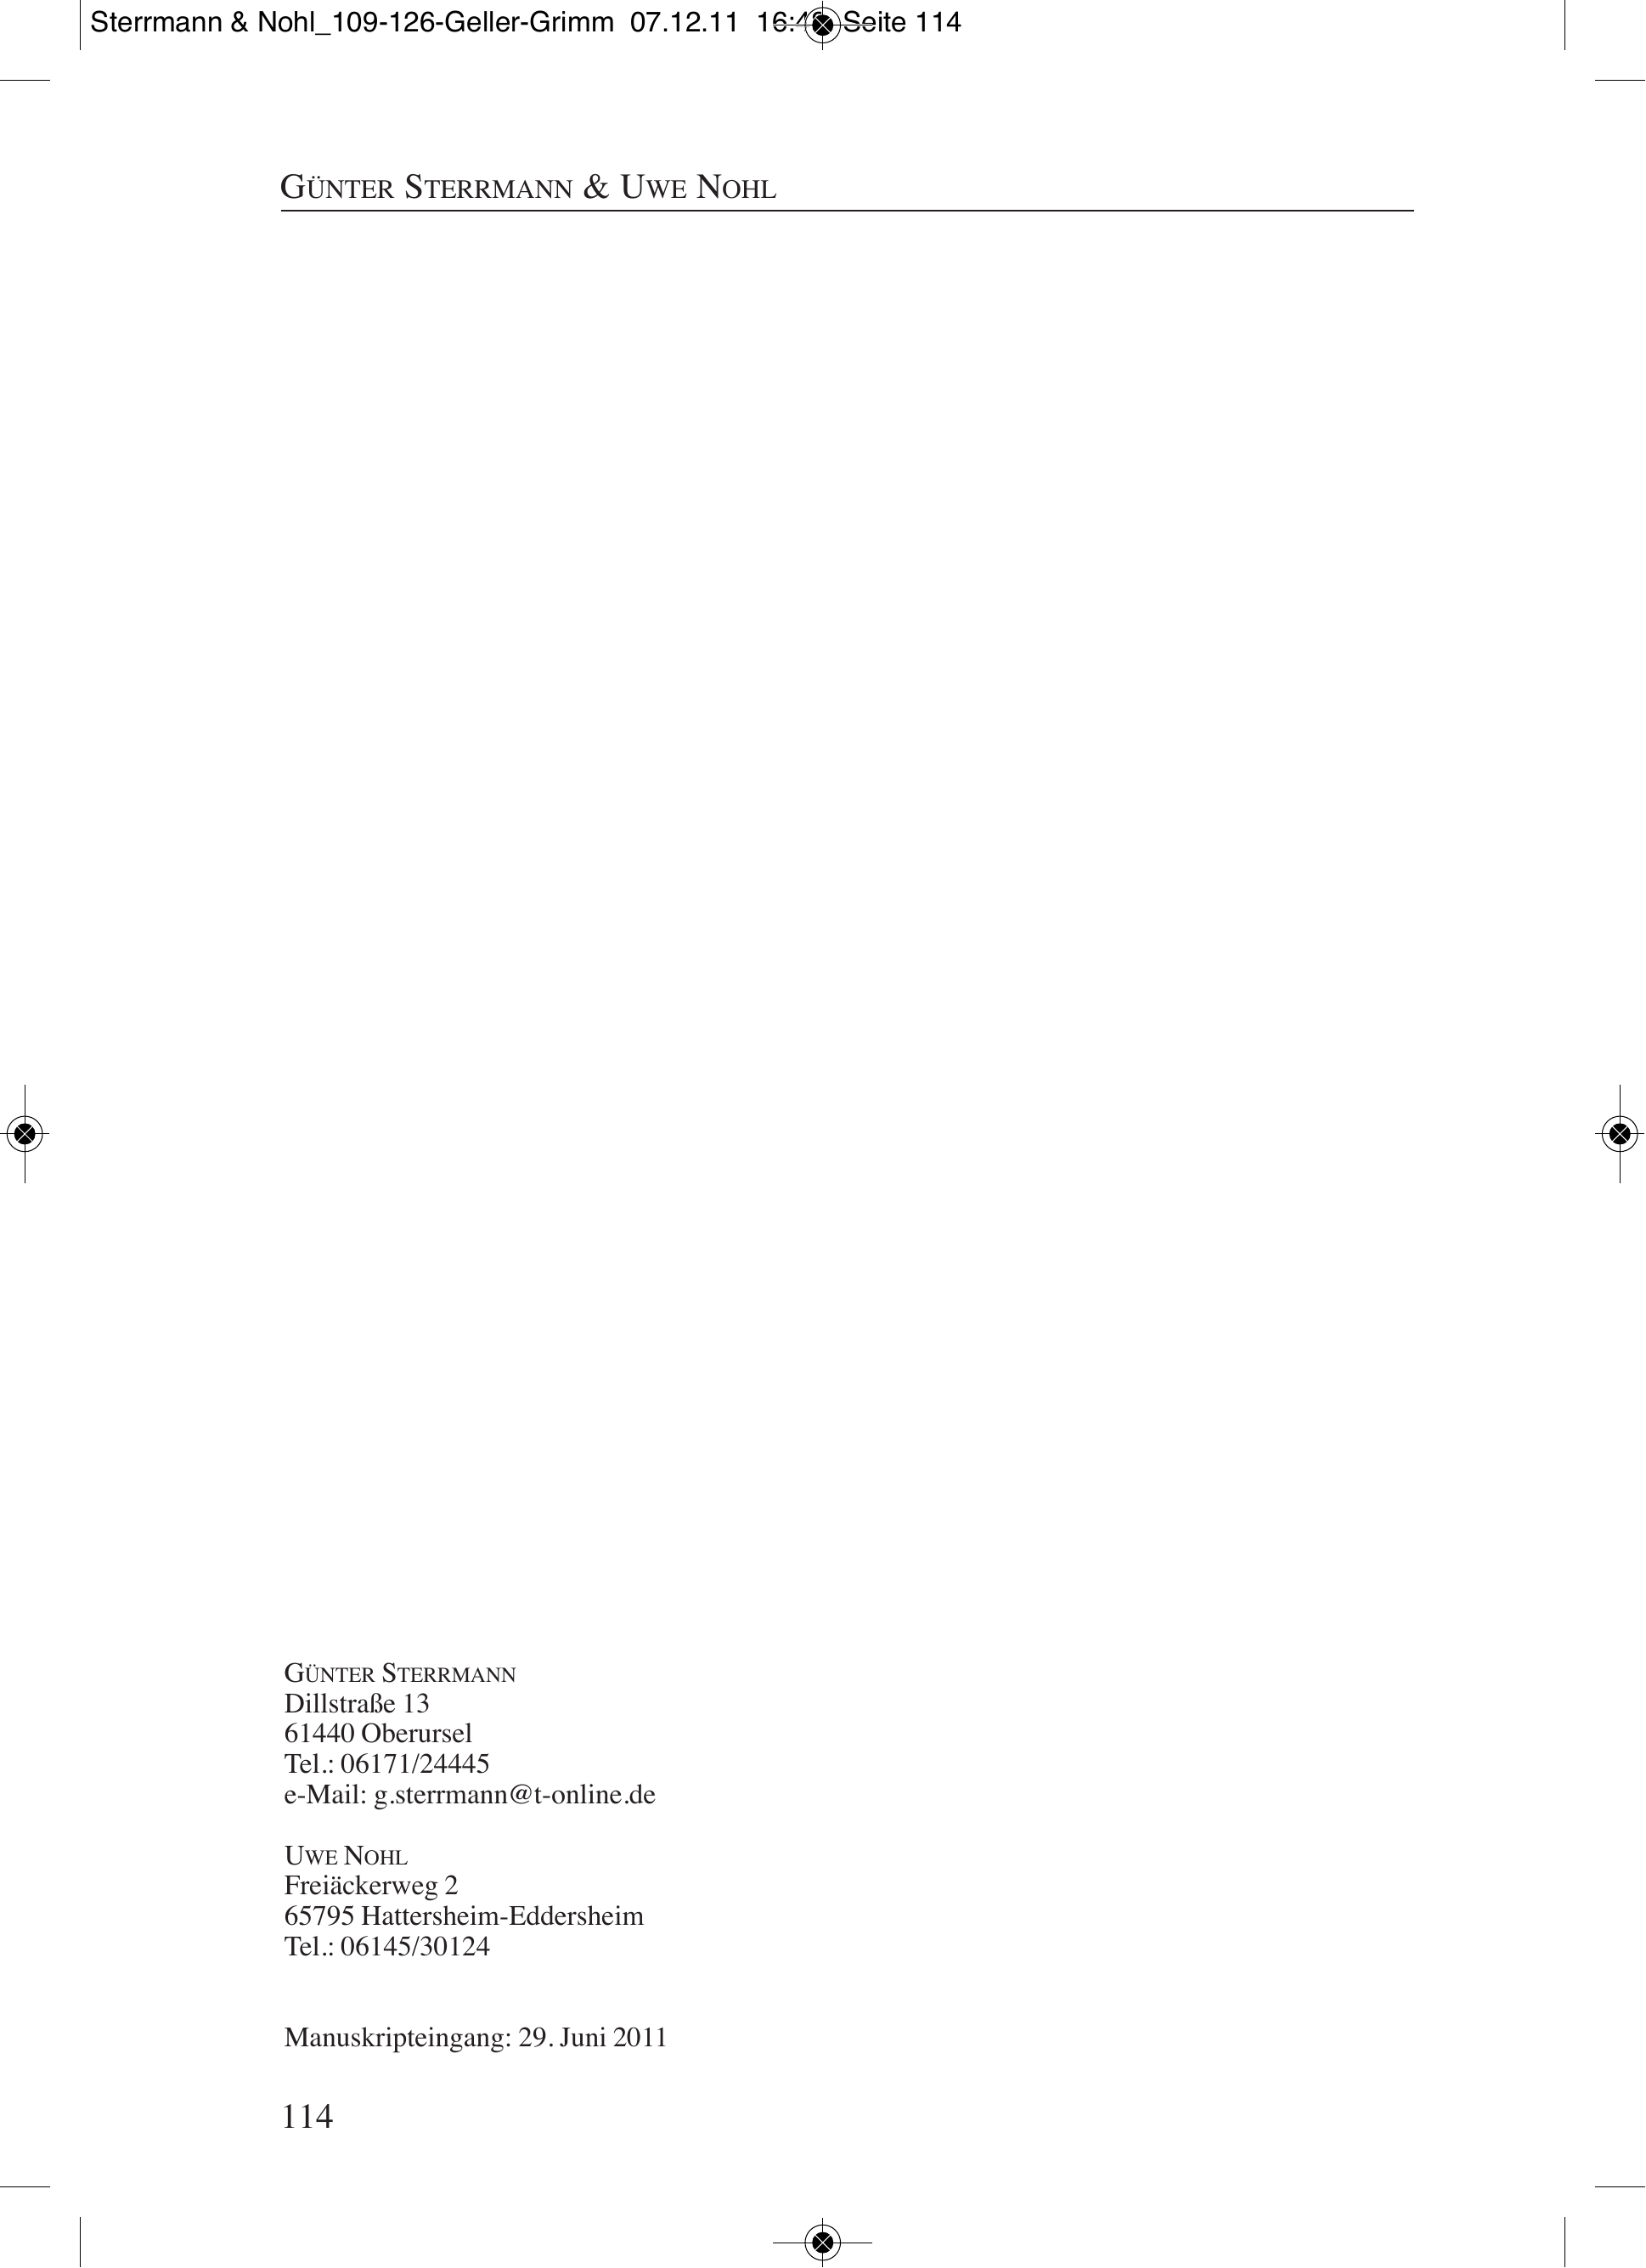 Sterrmann & Nohl_109-126-Geller-Grimm 07.12.11 Seite 114
GÜNTER STERRMANN & UWE NOHL
GÜNTER STERRMANN
Dillstraße 13
61440 Oberursel
Tel.: 06171/24445
e-Mail: g.sterrmann@t-online.de
UWE NOHL
Freiäckerweg 2
65795 Hattersheim-Eddersheim
Tel.: 06145/30124
Manuskripteingang: 29. Juni 2011
114